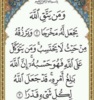 وَمَن يَتَّقِ ٱللَّهَ
يَجۡعَل لَّهُۥ مَخۡرَجٗا ۝ وَيَرۡزُقۡهُ
مِنۡ حَيۡثُ لَا يَحۡتَسِبُۚ وَمَن يَتَوَكَّلۡ
عَلَى ٱللَّهِ فَهُوَ حَسۡبُهُۥٓۚ إِنَّ ٱللَّهَ
بَٰلِغُ أَمۡرِهِۦۚ قَدۡ جَعَلَ ٱللَّهُ
لِكُلِّ شَيۡءٖ قَدۡرٗا